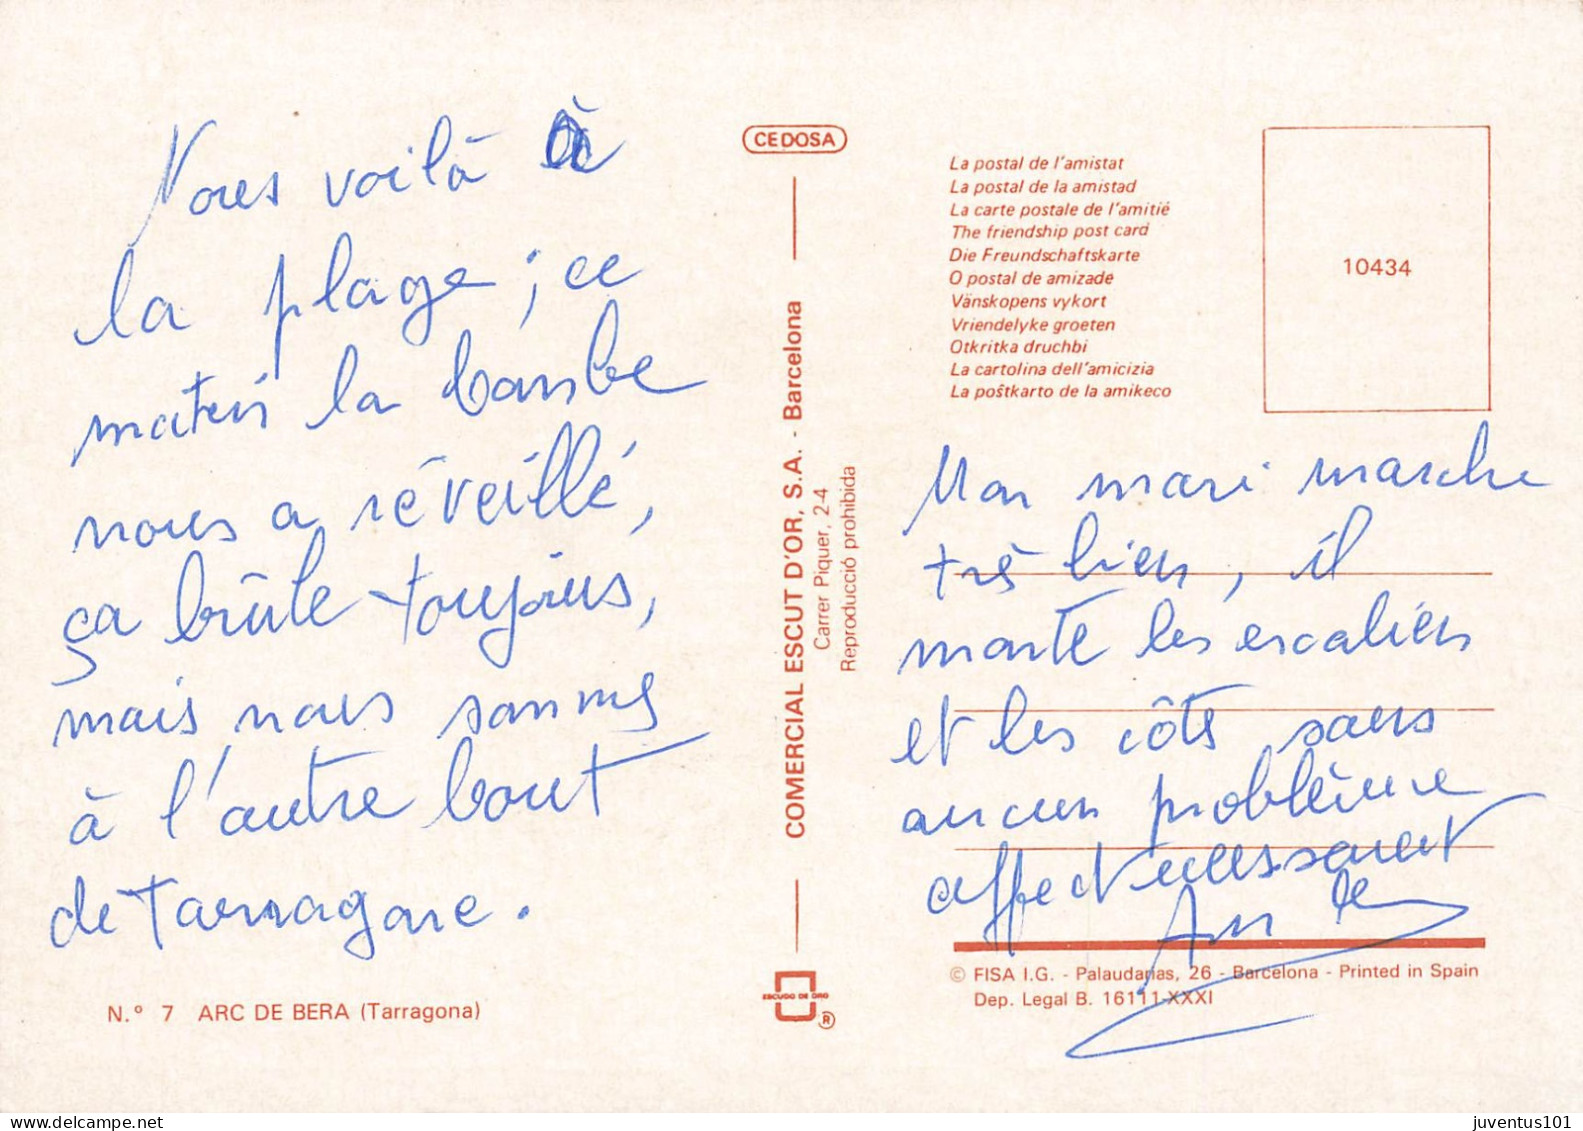 Nous voilà à
la plage ; ce
matin la bombe
nous a réveillé,
ça brûle toujours,
mais nous sommes
à l'autre bout
de Tarragone.
N.º 7 ARC DE BERA (Tarragona)
CEDOSA
COMERCIAL ESCUT D'OR, S.A. - Barcelona
Carrer Piquer, 2-4
Reproducció prohibida
ESCUDO DE ORO
®
La postal de l'amistat
La postal de la amistad
La carte postale de l'amitié
The friendship post card
Die Freundschaftskarte
O postal de amizade
Vänskopens vykort
Vriendelyke groeten
Otkritka druchbi
La cartolina dell'amicizia
La poŝtkarto de la amikeco
10434
Mon mari marche
très bien, il
monte les escaliers
et les côtes sans
aucun problème
affectueusement
© FISA I.G. - Palaudarias, 26 - Barcelona - Printed in Spain
Dep. Legal B. 16111-XXXI
juventus101